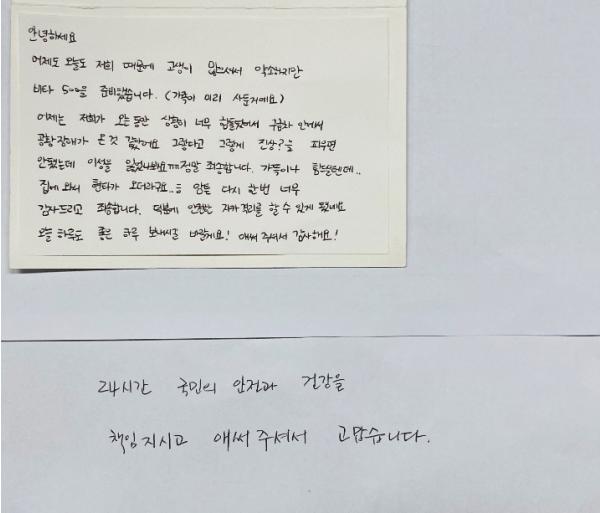 안녕하세요
어제도 오늘도 저희 때문에 고생이 많으셔서 약소하지만
비타 500을 준비했습니다. (가족이 미리 사둔거예요)
어제는 저희가 오는 동안 상황이 너무 힘들었어서 구급차 안에서
공황장애가 온 것 같았어요 그렇다고 그렇게 진상?을 피우면
안됐는데 이성을 잃었나봐요ㅠㅠ정말 죄송합니다. 가뜩이나 힘드실텐데..
집에 와서 현타가 오더라구요.. 암튼 다시 한번 너무
감사드리고 죄송합니다. 덕분에 안전한 자가격리를 할 수 있게 됐네요
오늘 하루도 좋은 하루 보내시길 바랄게요! 애써 주셔서 감사해요!
24시간 국민의 안전과 건강을
책임지시고 애써 주셔서 고맙습니다.